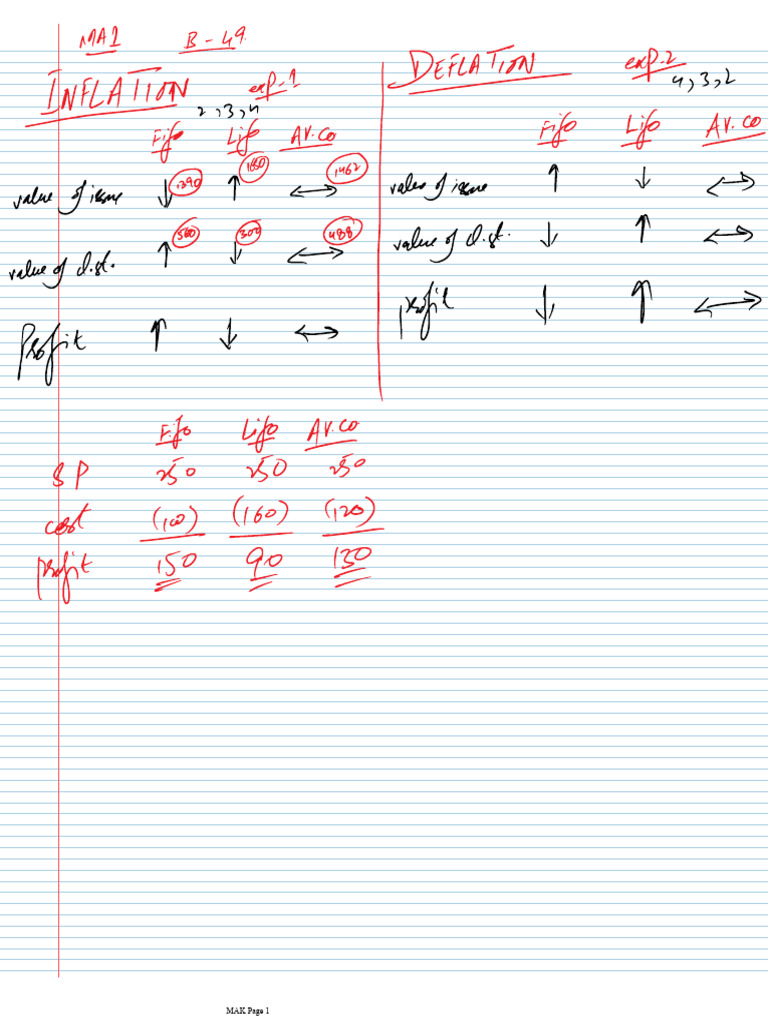 MA1 B-49
INFLATION exp-1
2,3,4
Fifo Lifo AV.CO
value of issue ↓ 1390 ↑ 1650 ↔ 1462
value of d.st. ↑ 560 ↓ 300 ↔ 488
Profit ↑ ↓ ↔
DEFLATION exp-2
4,3,2
Fifo Lifo AV.CO
value of issue ↑ ↓ ↔
value of d.st. ↓ ↑ ↔
profit ↓ ↑ ↔
Fifo Lifo AV.CO
SP 250 250 250
cost (100) (160) (120)
profit 150 90 130
MAK Page 1